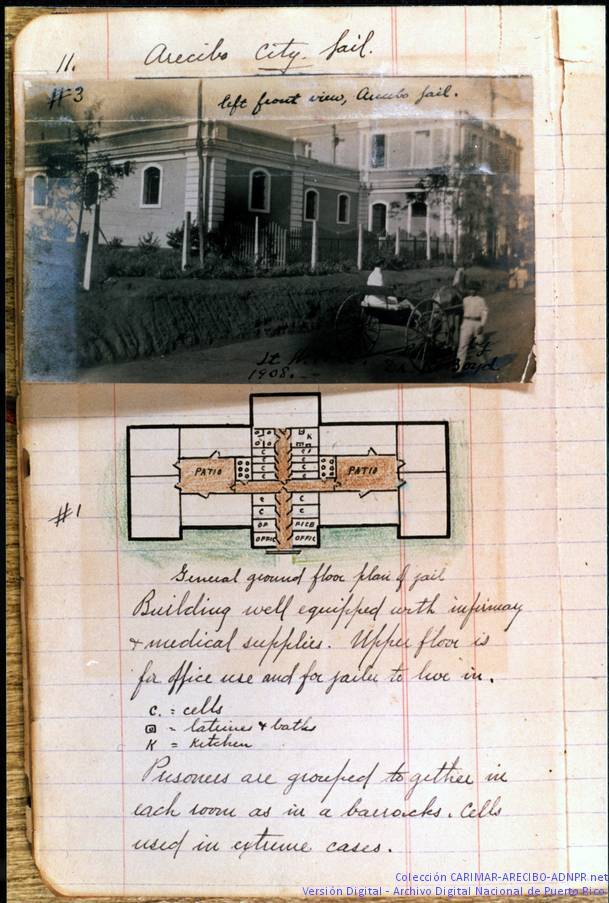 11. Arecibo City Jail.
#3 left front view, Arecibo Jail.
St
1908. Boyd
K
C C
C C
C C
C C
PATIO PATIO
C C
C C
OF FICE
OFFIC OFFIC
#1
General ground floor plan of jail
Building well equipped with infirmay
& medical supplies. Upper floor is
for office use and for jailer to live in.
C. = cells
= latrines & baths
K = Kitchen
Prisoners are grouped together in
each room as in a barracks. Cells
used in extreme cases.
Colección CARIMAR-ARECIBO-ADNPR.net
Versión Digital - Archivo Digital Nacional de Puerto Rico